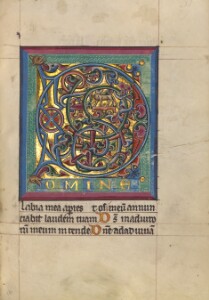 DOMINE
labia mea apies ⁊ os meū annun
ciabit laudem tuam Ds̄ in adiuto
riū meum intende Dn̄e ad adiuvā